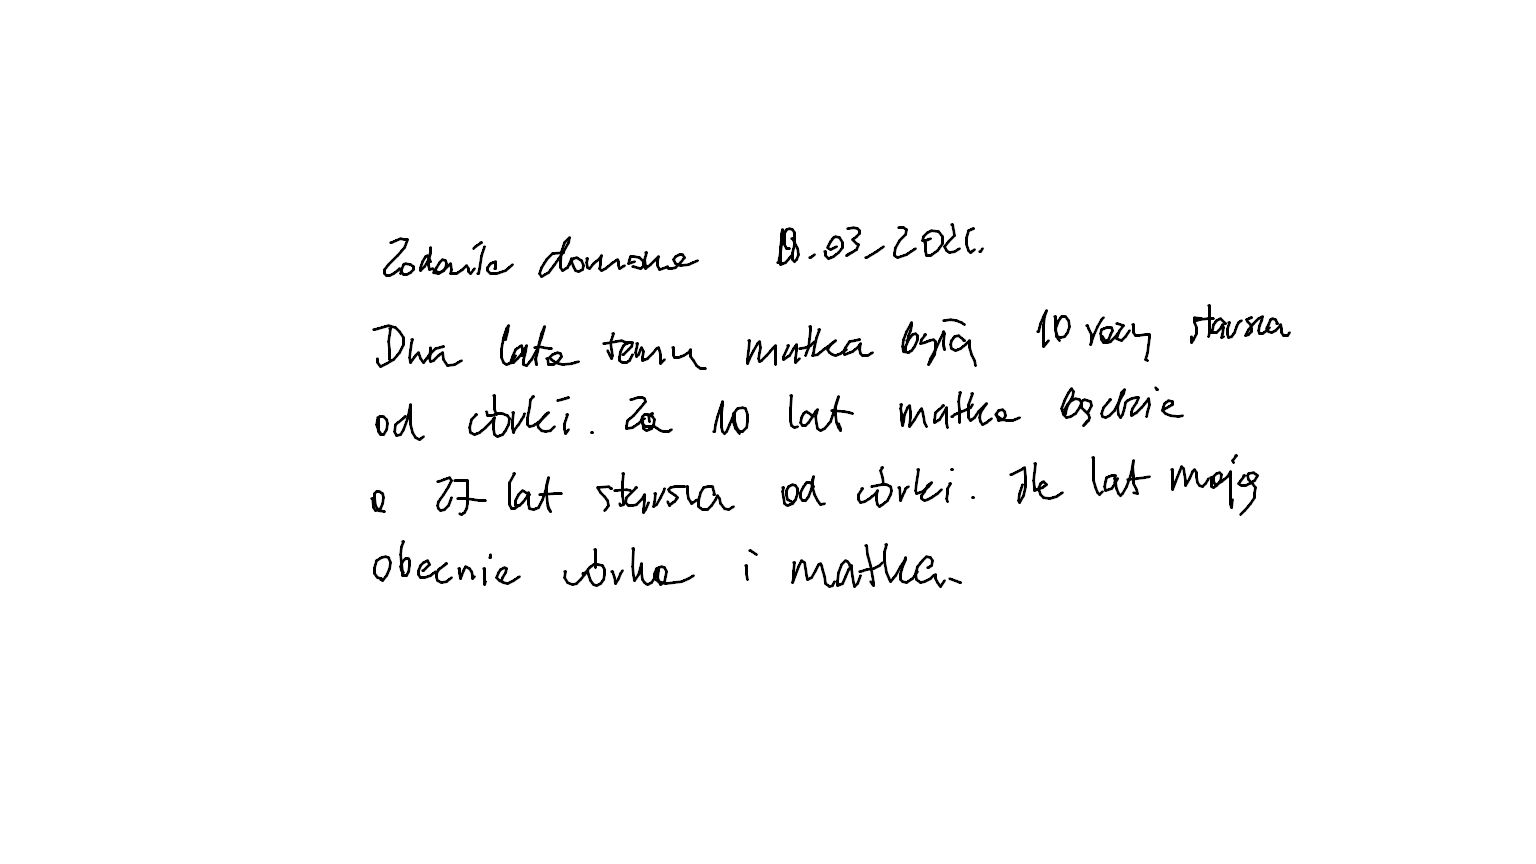 Zadanie domowe .03.202
Dwa lata temu matka była 10 razy starsza
od córki. Za 10 lat matka będzie
o 27 lat starsza od córki. Ile lat mają
obecnie córka i matka.